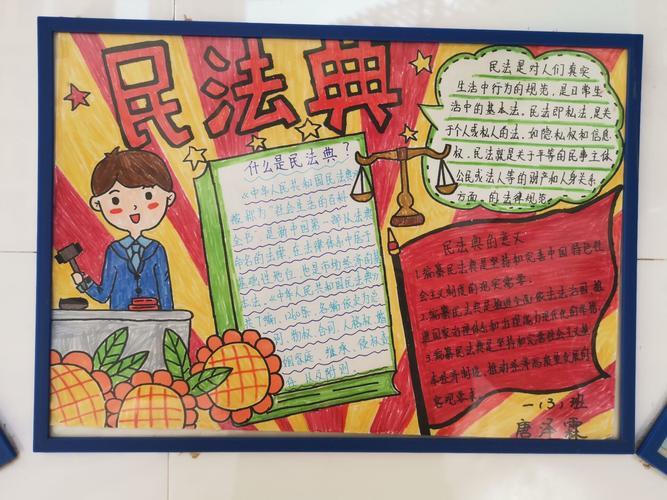 民法典
什么是民法典？
《中华人民共和国民法典》
被称为"社会生活的百科
全书"是新中国第一部以法典
命名的法律，在法律体系中居于
基础性地位，也是市场经济的基
本法，《中华人民共和国民法典》
共7编、1260条，各编依次为总
则、物权、合同、人格权、婚
姻家庭、继承、侵权责
任以及附则。
民法是对人们真实
生活中行为的规范，是日常生
活中的基本法，民法即私法，是关
于个人或私人的法，如隐私权和信息
权，民法就是关于平等的民事主体
公民或法人等的财产和人身关系
方面的法律规范。
民法典的意义
1.编纂民法典是坚持和完善中国特色社
会主义制度的现实需要。
2.编纂民法典是推进全面依法治国推
进国家治理体系和治理能力现代化的
3.编纂民法典是坚持和完善社会主义
本经济制度、推动经济高质量发展的
客观要求。
一（3）班
唐泽霖